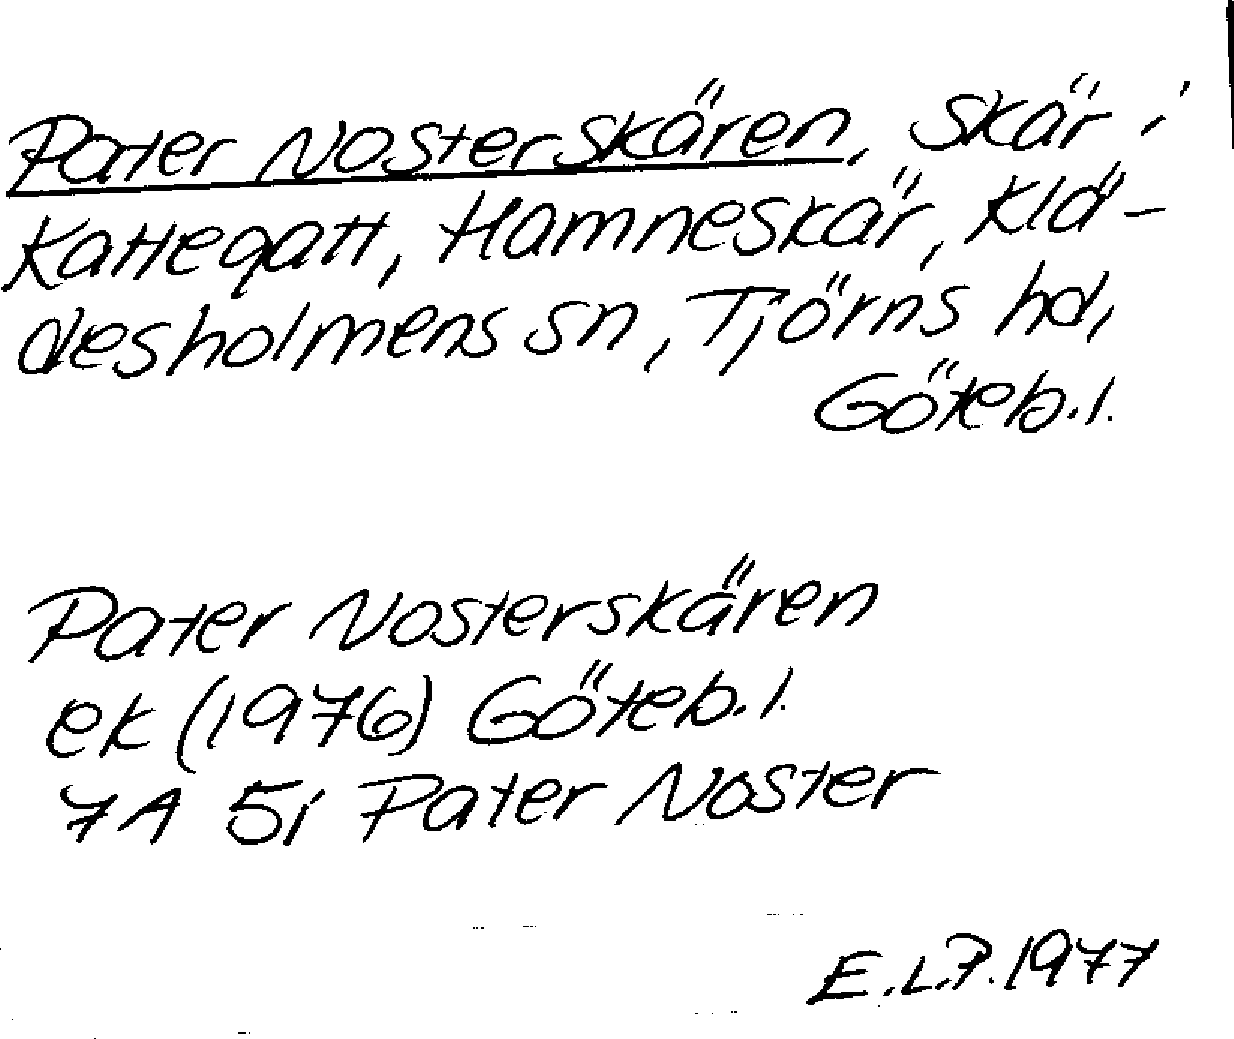 Pater Nosterskären, skär i
Kattegatt, Hamneskär, Klä-
desholmens sn, Tjörns hd,
Göteb.l.
Pater Nosterskären
ek (1976) Göteb.l.
7A 5i Pater Noster
E.L.P. 1977